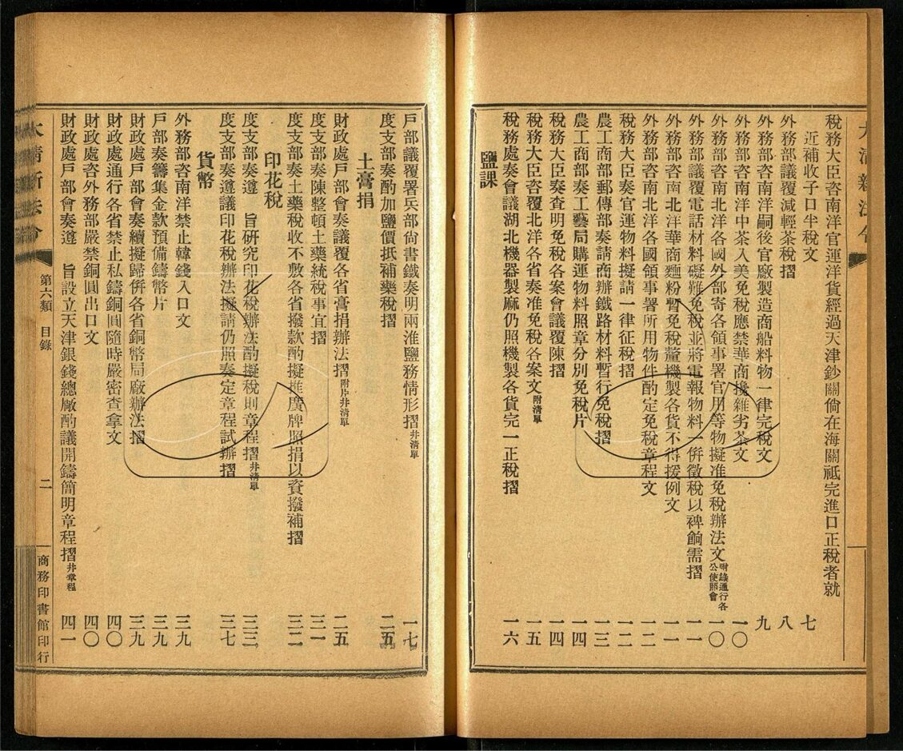 大清新法令
稅務大臣咨南洋官運洋貨經過天津鈔關倘在海關祗完進口正稅者就
近補收子口半稅文 七
外務部議覆減輕茶稅摺 八
外務部咨南洋嗣後官廠製造商船料物一律完稅文 九
外務部咨南洋中茶入美免稅應禁華商攙雜劣茶文 一〇
外務部咨南北洋各國外部寄各領事署官用等物擬准免稅辦法文附錄通行各公使照會 一〇
外務部議覆電話材料礙難免稅並將電報物料一併徵稅以裨餉需摺 一一
外務部咨南北洋華商麵粉暫免稅釐機製各貨不得援例文 一一
外務部咨南北洋各國領事署所用物件酌定免稅章程文 一二
稅務大臣奏官運物料擬請一律征稅摺 一二
農工商部郵傳部奏請商辦鐵路材料暫行免稅摺 一三
農工商部奏工藝局購運物料照章分別免稅片 一四
稅務大臣奏查明免稅各案會議覆陳摺 一四
稅務大臣咨覆北洋各省奏准免稅各案文附清單 一五
稅務處奏會議湖北機器製麻仍照機製各貨完一正稅摺 一六
鹽課
戶部議覆署兵部尙書鐵奏明兩淮鹽務情形摺并清單 一七
度支部奏酌加鹽價抵補藥稅摺 二五
土膏捐
財政處戶部會奏議覆各省膏捐辦法摺附片并清單 二五
度支部奏陳整頓土藥統稅事宜摺 三一
度支部奏土藥稅收不敷各省撥款酌擬推廣牌照捐以資撥補摺 三二
印花稅
度支部奏遵 旨硏究印花稅辦法酌擬稅則章程摺并清單 三三
度支部奏遵議印花稅辦法擬請仍照奏定章程試辦摺 三七
貨幣
外務部咨南洋禁止韓錢入口文 三九
戶部奏籌集金款預備鑄幣片 三九
財政處戶部會奏續擬歸併各省銅幣局廠辦法摺 三九
財政處通行各省禁止私鑄銅圓隨時嚴密查拿文 四〇
財政處咨外務部嚴禁銅圓出口文 四〇
財政處戶部會奏遵 旨設立天津銀錢總廠酌議開鑄簡明章程摺并章程 四一
大清新法令 第六類 目錄 二 商務印書館印行